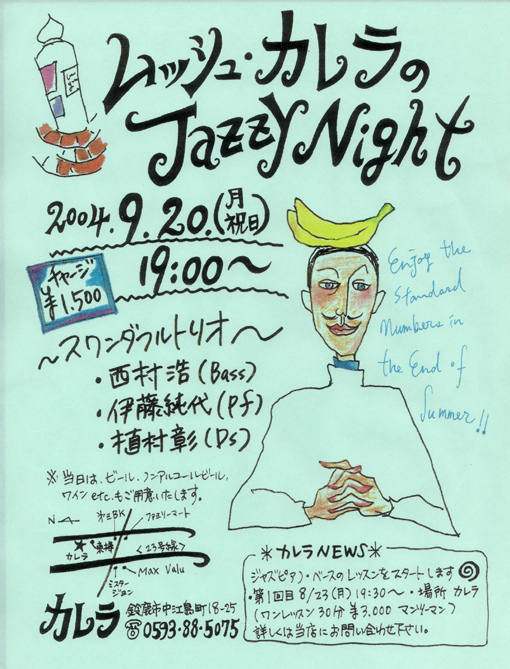 ムッシュ・カレラの
Jazzy Night
2004.9.20.(月祝日)
19:00〜
チャージ
¥1,500
〜スワンダフルトリオ〜
・西村浩(Bass)
・伊藤純代(Pf)
・植村彰(Ds)
Enjoy the
Standard
Numbers in
the End of
Summer!!
※当日は、ビール、ノンアルコールビール,
ワイン etc.もご用意いたします。
N
オミBK
ファミリーマート
カレラ
〈23号線〉
ミスタージョン
MAX Valu
カレラ
鈴鹿市中江島町18-25
☎0593・88・5075
＊カレラNEWS＊
ジャズピアノ・ベースのレッスンをスタートします
・第1回目 8/23(月)19:30〜・場所 カレラ
(ワンレッスン30分 ¥3,000 マンツーマン)
詳しくは当店にお問い合わせ下さい。